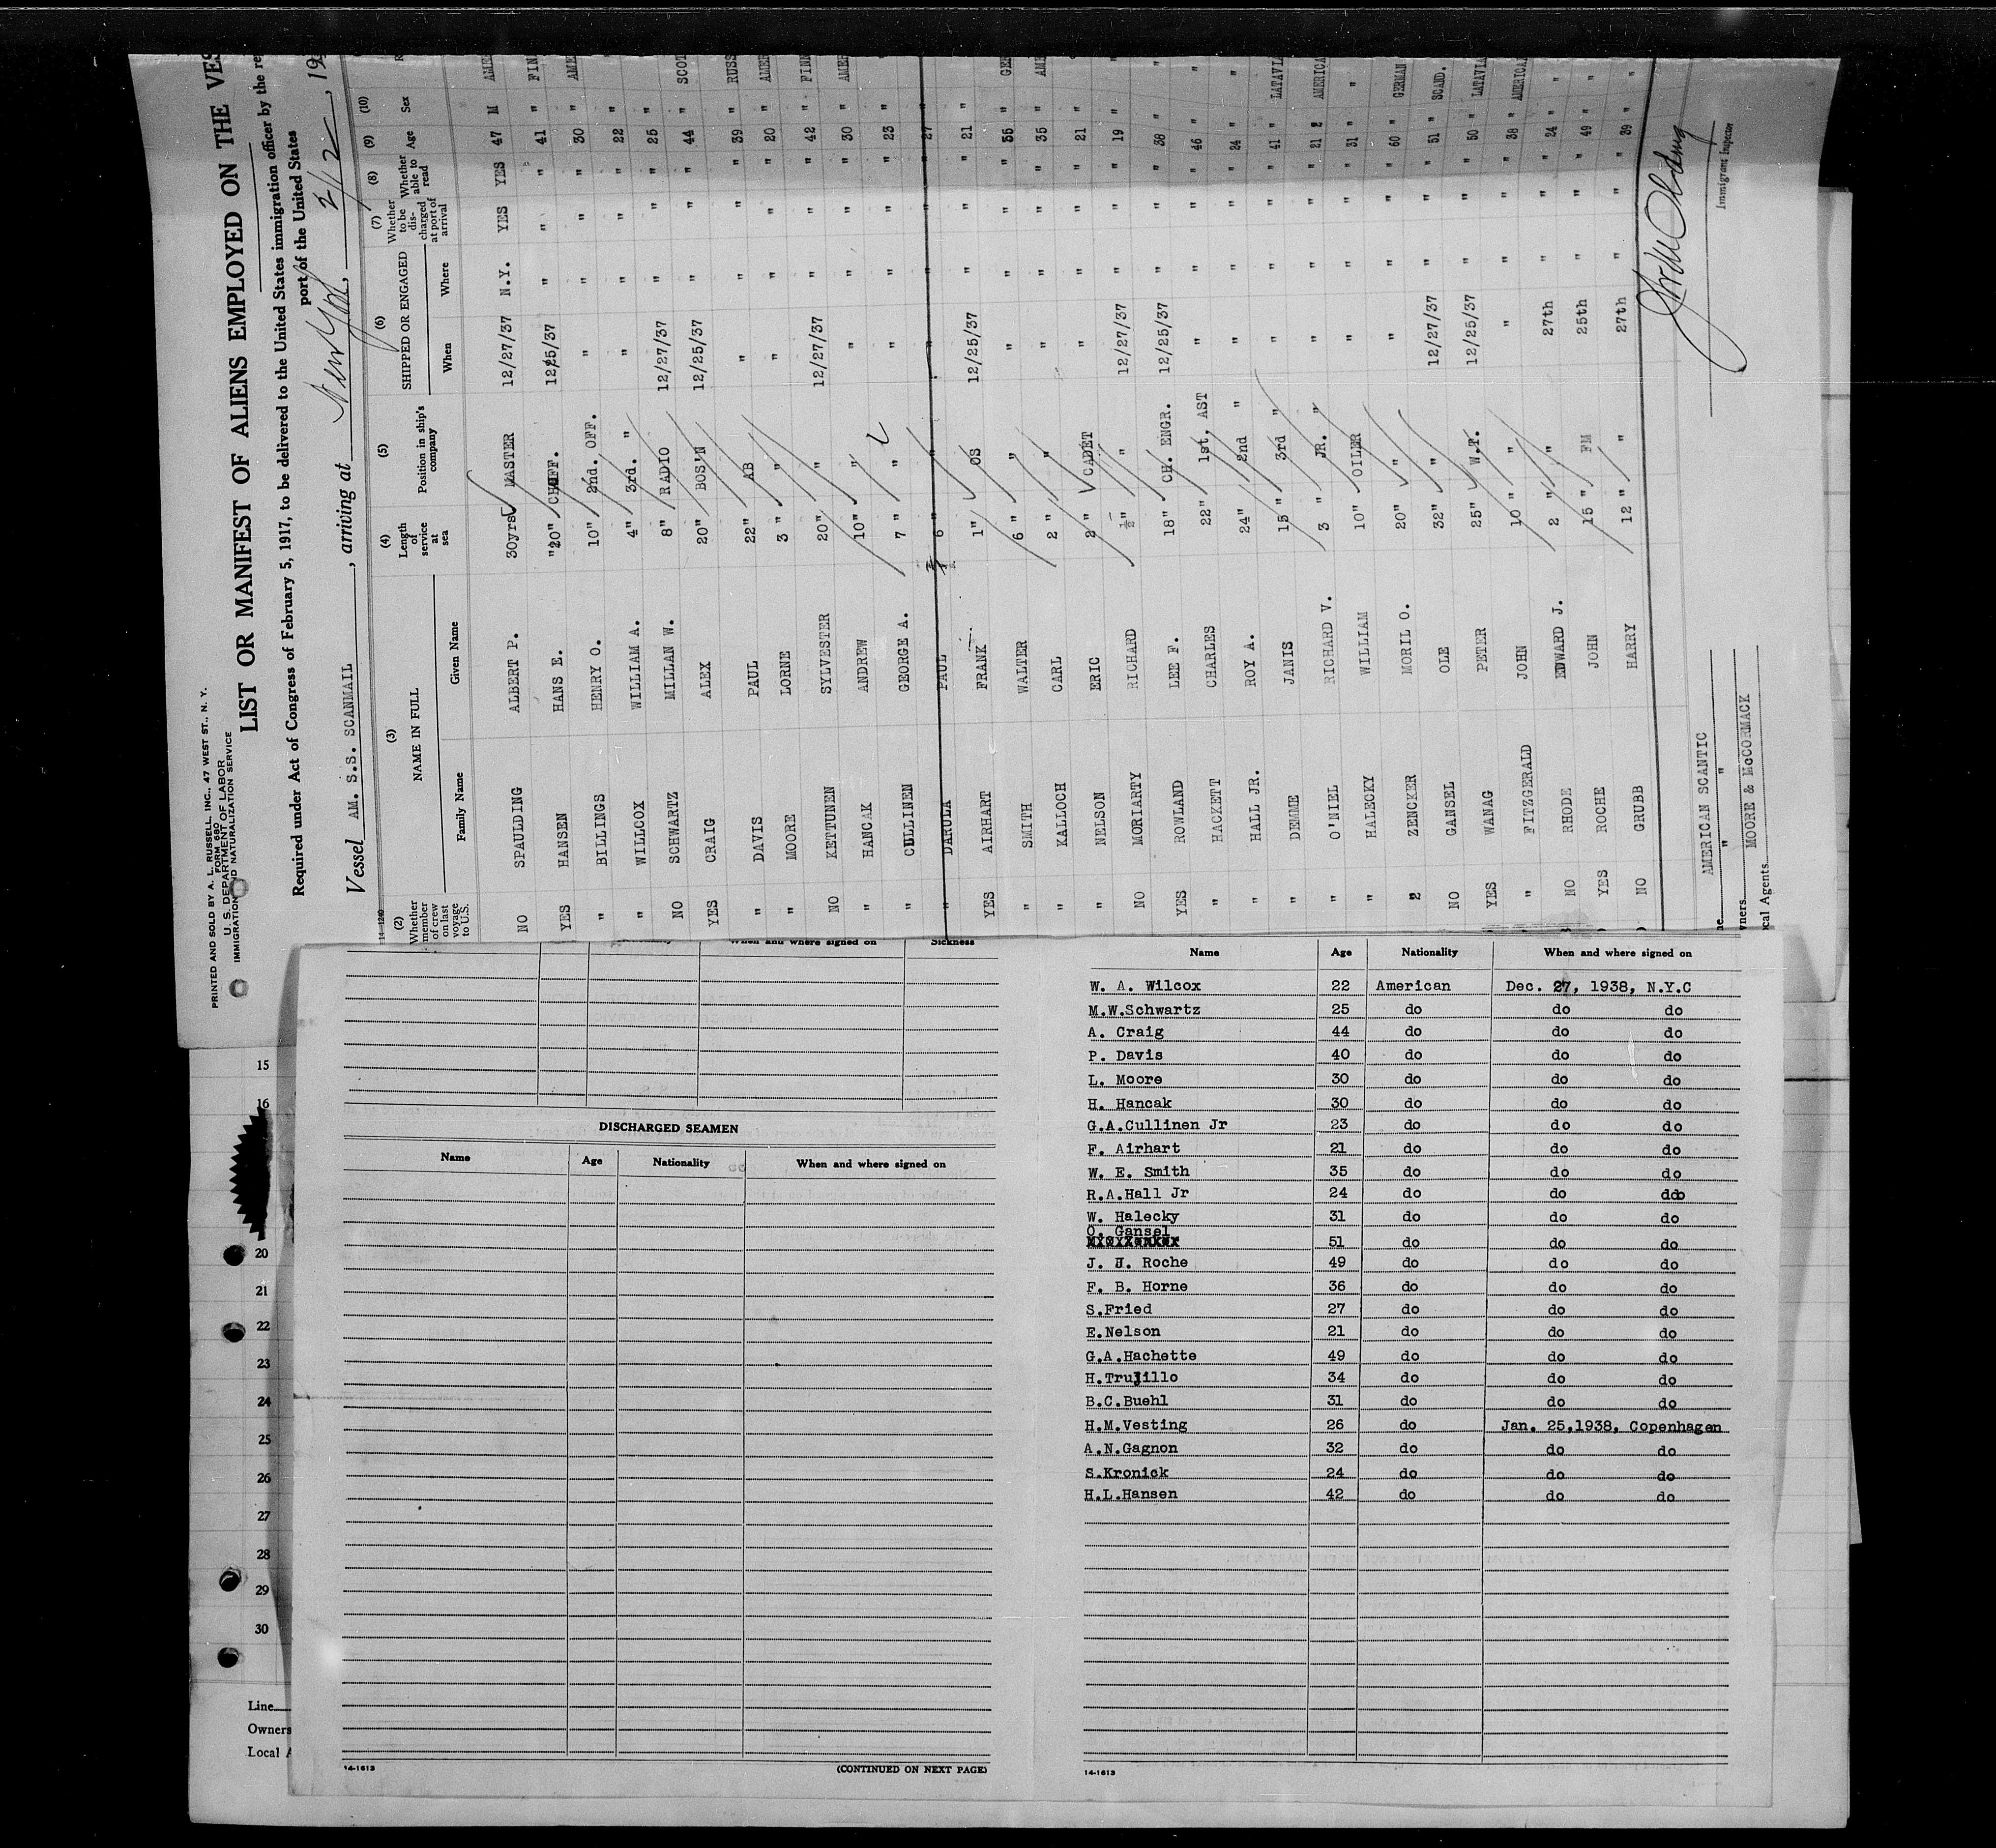 PRINTED AND SOLD BY A. L. RUSSELL, INC., 47 WEST ST., N. Y.
FORM 680
U. S. DEPARTMENT OF LABOR
IMMIGRATION AND NATURALIZATION SERVICE
LIST OR MANIFEST OF ALIENS EMPLOYED ON THE VES
Required under Act of Congress of February 5, 1917, to be delivered to the United States immigration officer by the re
port of the United States
Vessel AM. S.S. SCANMAIL, arriving at New York, 2/12, 19
14-1240
(2) (3) (4) (5) (6) (7) (8) (9) (10)
Whether member of crew on last voyage to U.S. NAME IN FULL Family Name Given Name Length of service at sea Position in ship's company SHIPPED OR ENGAGED When Where Whether to be discharged at port of arrival Whether able to read Age Sex R
NO SPAULDING ALBERT P. 30yrs MASTER 12/27/37 N.Y. YES YES 47 M AME
YES HANSEN HANS E. "20" CH OFF. 12/25/37 " " " 41 " FIN
" BILLINGS HENRY O. 10" 2nd. OFF. " " " " 30 " AME
" WILLCOX WILLIAM A. 4" 3rd. " " " " " 22 " "
NO SCHWARTZ MILLAN W. 8" RADIO 12/27/37 " " " 25 " "
YES CRAIG ALEX 20" BOS'N 12/25/37 " " " 44 " SCOT
" DAVIS PAUL 22" AB " " " " 39 " RUSS
" MOORE LORNE 3 " " " " " " 20 " AME
NO KETTUNEN SYLVESTER 20" " 12/27/37 " " " 42 " FINN
" HANCAK ANDREW 10" " " " " " 30 " AME
" CULLINEN GEORGE A. 7 " " " " " " 23 " "
" DARULA PAUL 6 " " " " " " 27 " "
YES AIRHART FRANK 1" OS 12/25/37 " " " 21 " "
" SMITH WALTER 6 " " " " " " 35 " GE
" KALLOCH CARL 2 " " " " " " 35 " AME
" NELSON ERIC 2 " CADET " " " " 21 " "
NO MORIARTY RICHARD ½" " 12/27/37 " " " 19 " "
YES ROWLAND LEE F. 18" CH. ENGR. 12/25/37 " " " 38 " "
" HACKETT CHARLES 22" 1st. AST " " " " 46 " "
" HALL JR. ROY A. 24" 2nd " " " " " 24 " "
" DEMME JANIS 15 " 3rd " " " " " 41 " LATAVIA
" O'NIEL RICHARD V. 3 " JR. " " " " " 21 " AMERICA
" HALECKY WILLIAM 10" OILER " " " " 31 " "
ZENCKER MORIL O. 20" " " " " " 60 " GERMAN
NO GANSEL OLE 32" " 12/27/37 " " " 51 " SCAND.
YES WANAG PETER 25" W.T. 12/25/37 " " " 50 " LATAVIA
" FITZGERALD JOHN 10 " " " " " " 38 " AMERICA
NO RHODE EDWARD J. 2 " " 27th " " " 24 " "
YES ROCHE JOHN 15 " FM 25th " " " 49 " "
NO GRUBB HARRY 12 " " 27th " " " 39 " "
ne AMERICAN SCANTIC
wners " "
cal Agents MOORE & McCORMACK
Immigrant Inspector
When and where signed on Sickness
DISCHARGED SEAMEN
Name Age Nationality When and where signed on
14-1613 (CONTINUED ON NEXT PAGE)
Name Age Nationality When and where signed on
W. A. Wilcox 22 American Dec. 27, 1938, N.Y.C
M.W.Schwartz 25 do do do
A. Craig 44 do do do
P. Davis 40 do do do
L. Moore 30 do do do
H. Hancak 30 do do do
G.A.Cullinen Jr 23 do do do
F. Airhart 21 do do do
W. E. Smith 35 do do do
R.A.Hall Jr 24 do do do
W. Halecky 31 do do do
O. Gansel 51 do do do
J. J. Roche 49 do do do
F. B. Horne 36 do do do
S.Fried 27 do do do
E.Nelson 21 do do do
G.A.Hachette 49 do do do
H.Trujillo 34 do do do
B.C.Buehl 31 do do do
H.M.Vesting 26 do Jan. 25,1938, Copenhagen
A.N.Gagnon 32 do do do
S.Kronick 24 do do do
H.L.Hansen 42 do do do
14-1613
15
16
20
21
22
23
24
25
26
27
28
29
30
Line
Owners
Local A